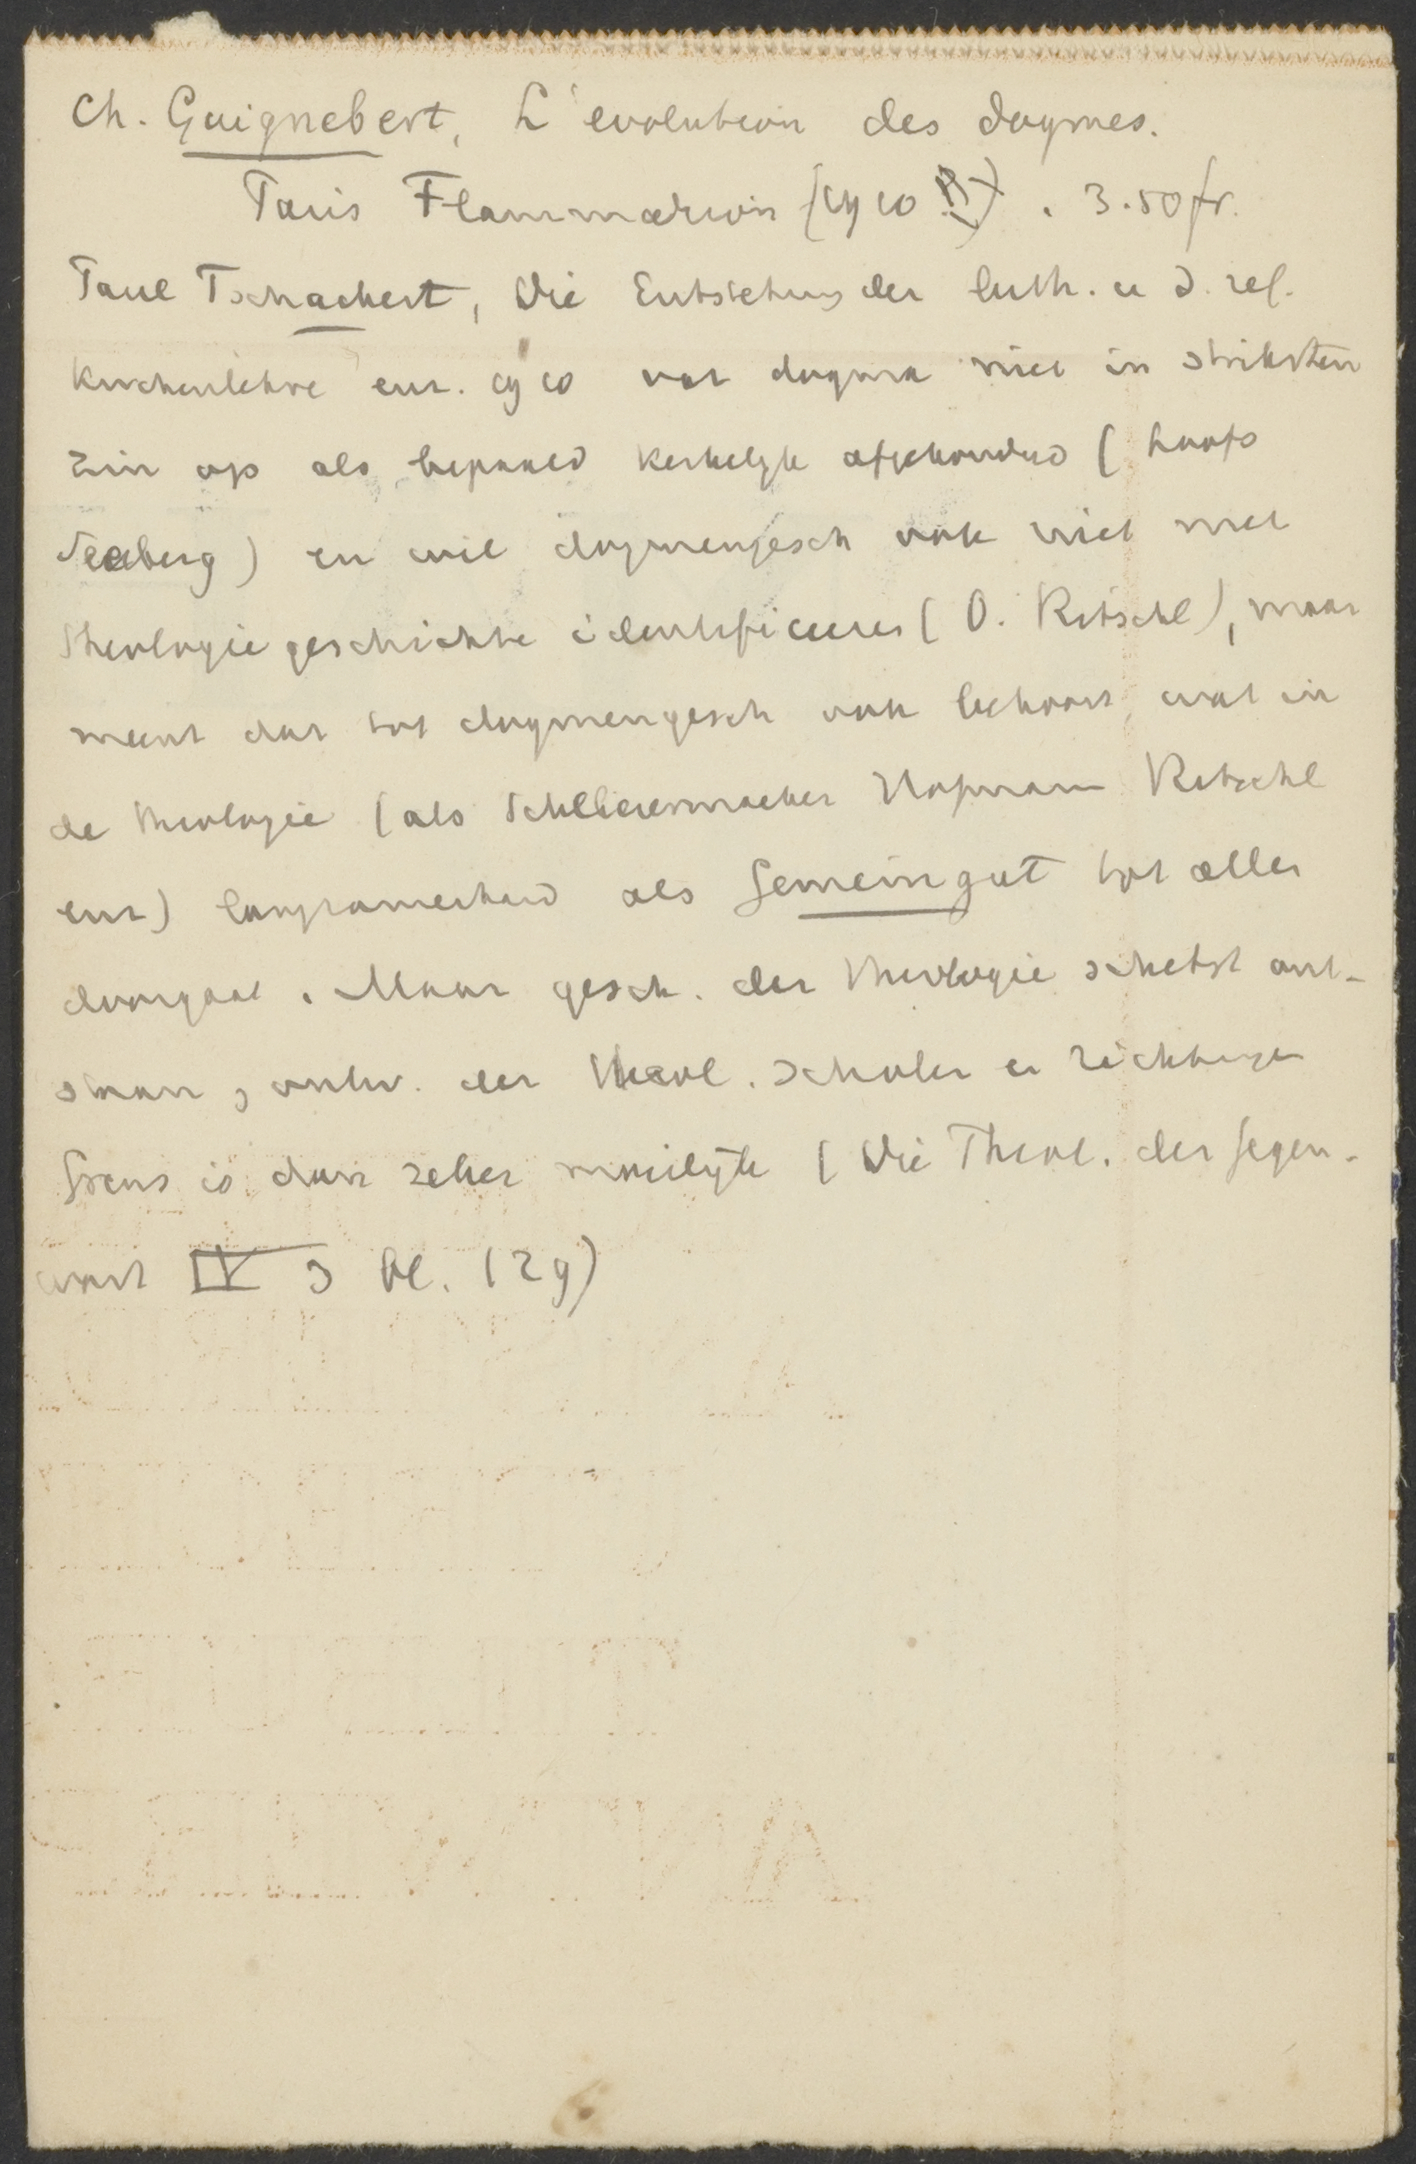 Ch. Guignebert, L'evolution des dogmes.
Paris Flammarion (1910 ) . 3.50 fr.
Paul Tschackert, Die Entstehung der luth. u d. ref.
Kirchenlehre enz. 1910 vat dogma niet in strikten
zin op als bepaald kerkelijk afgekondigd (Loofs
Seeberg) en wil dogmengesch ook niet met
Theologiegeschichte identificeeren (O. Ritschl), maar
meent dat tot dogmengesch ook behoort wat in
de theologie (als Schleiermacher Hofmann Ritschl
enz) langzamerhand als Gemeingut tot allen
doorgaat. Maar gesch. der theologie schetst ont-
staan, ontw. der theol. scholen en richtingen
Grens is dan zeker moeilijk (Die Theol. der Gegen-
wart IV 3 bl. 129)